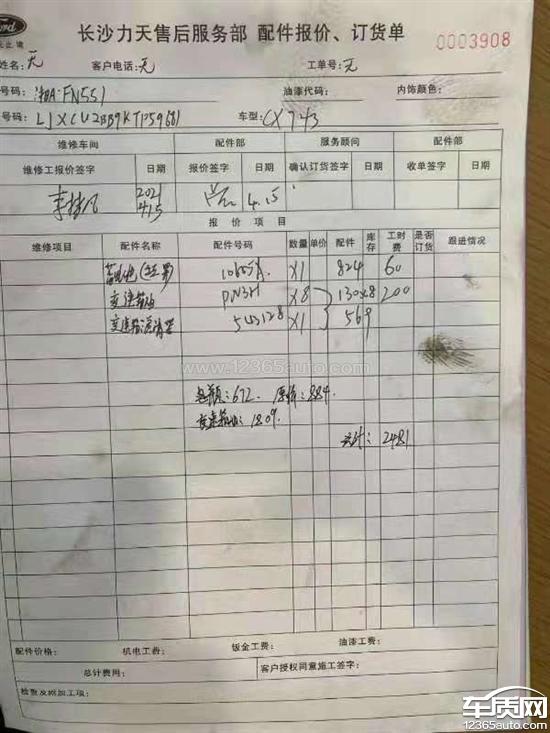 Ford
长沙力天售后服务部 配件报价、订货单
0003908
姓名：无 客户电话：无 工单号：无
号码：湘A·FN551 油漆代码： 内饰颜色：
号码： 车型：CX743
维修车间 配件部 服务顾问 配件部
维修工报价签字 日期 报价签字 日期 确认订货签字 日期 收单签字 日期
2021 4.15 4.15
报 价 项 目
维修项目 配件名称 配件号码 数量 单价 配件 库存 工时费 是否订货 跟进情况
X1 824 60
变速箱油 PN3H X8 130X8 200
变速箱滤清器 543128 X1 569
www.12365auto.com
电瓶：672. 原价：884.
变速箱油：1809.
共计：2481
配件价格： 机电工费： 钣金工费： 油漆工费：
总计费用： 客户授权同意施工签字：
检查及附加工项：
车质网
12365auto.com